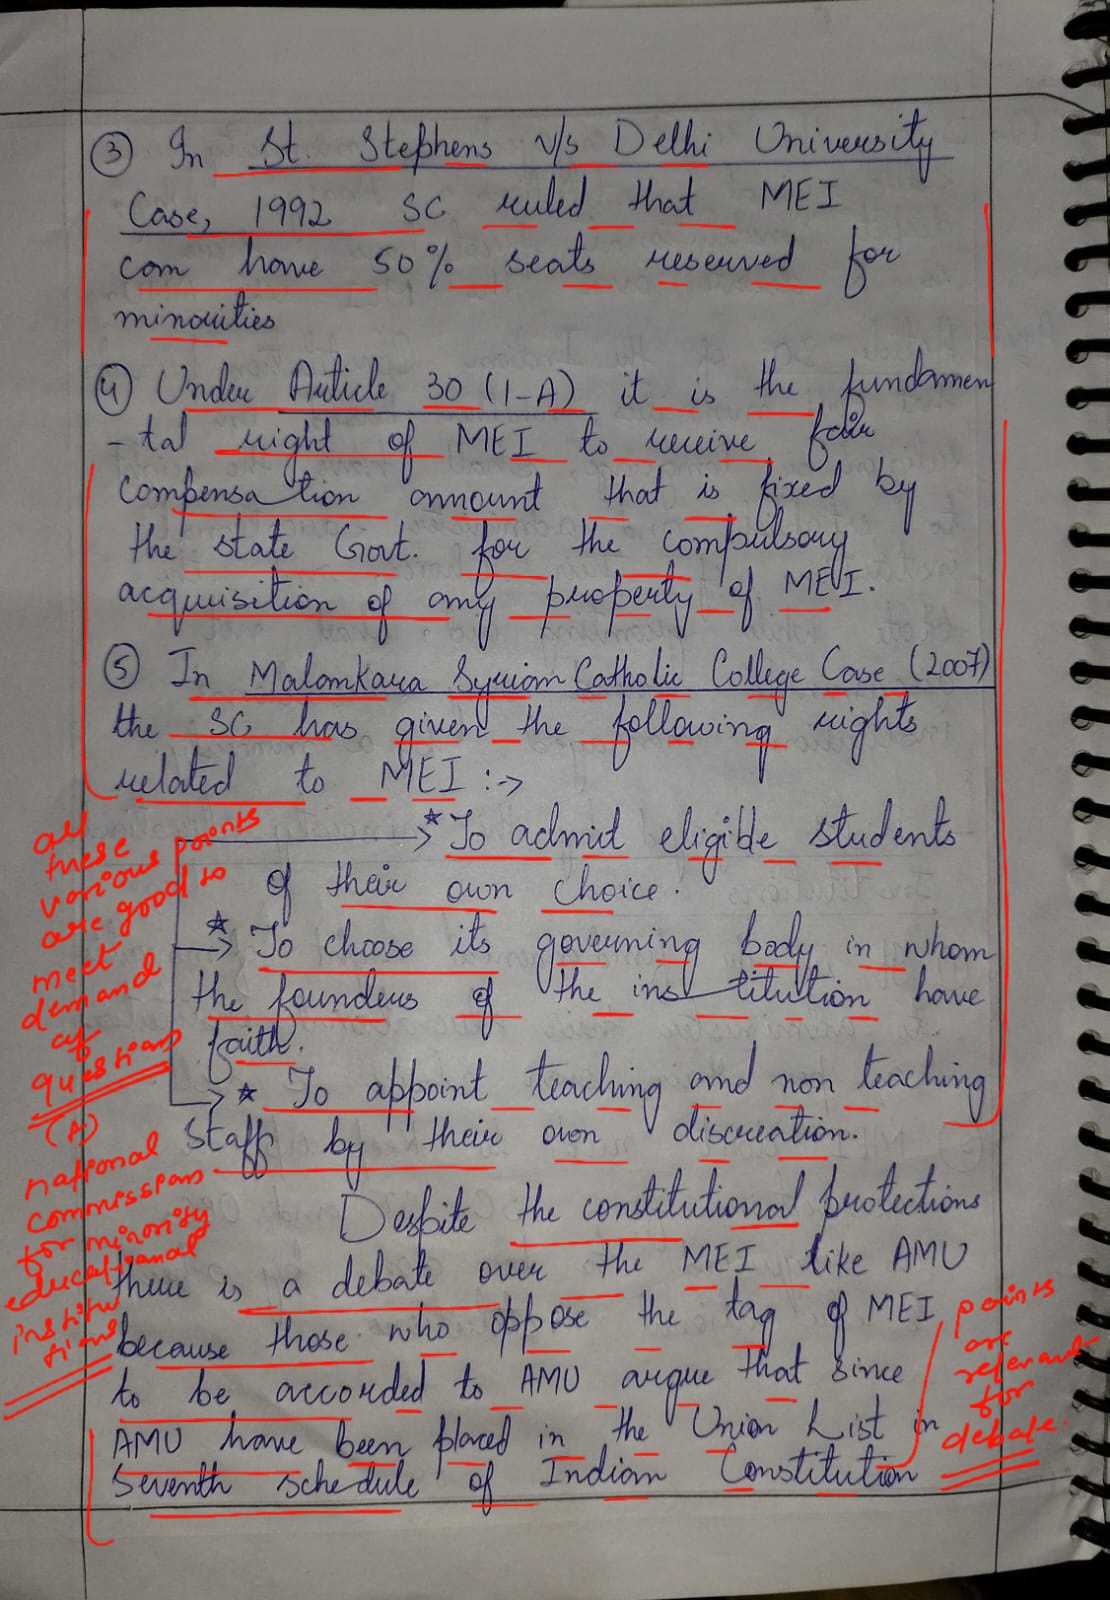 ③ In St. Stephens v/s Delhi University
Case, 1992 SC ruled that MEI
can have 50% seats reserved for
minorities
④ Under Article 30 (1-A) it is the fundamen
-tal right of MEI to receive fair
compensation amount that is fixed by
the state Govt. for the compulsory
acquisition of any property of MEI.
⑤ In Malankara Syrian Catholic College Case (2007)
the SC has given the following rights
related to MEI :→
* To admit eligible students
of their own choice.
* To choose its governing body in whom
the founders of the institution have
faith.
* To appoint teaching and non teaching
staff by their own discreation.
Despite the constitutional protections
there is a debate over the MEI like AMU
because those who oppose the tag of MEI
to be accorded to AMU argue that since
AMU have been placed in the Union List in
Seventh schedule of Indian Constitution
all
these
various points
are good to
meet
demand
of
question
(A)
national
commission
for minority
educational
institu
tions
points
are
relevant
for
debate.